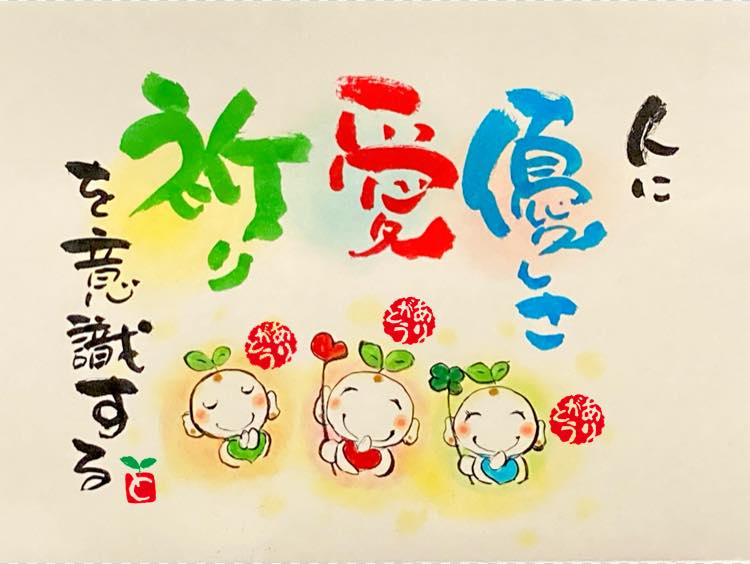 人に
優しさ
愛
祈り
を意識する
ありがとう
ありがとう
ありがとう
と